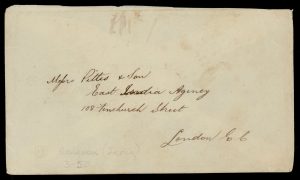 Messrs Pittis & Son
East India Agency
108 Fenchurch Street
London E C